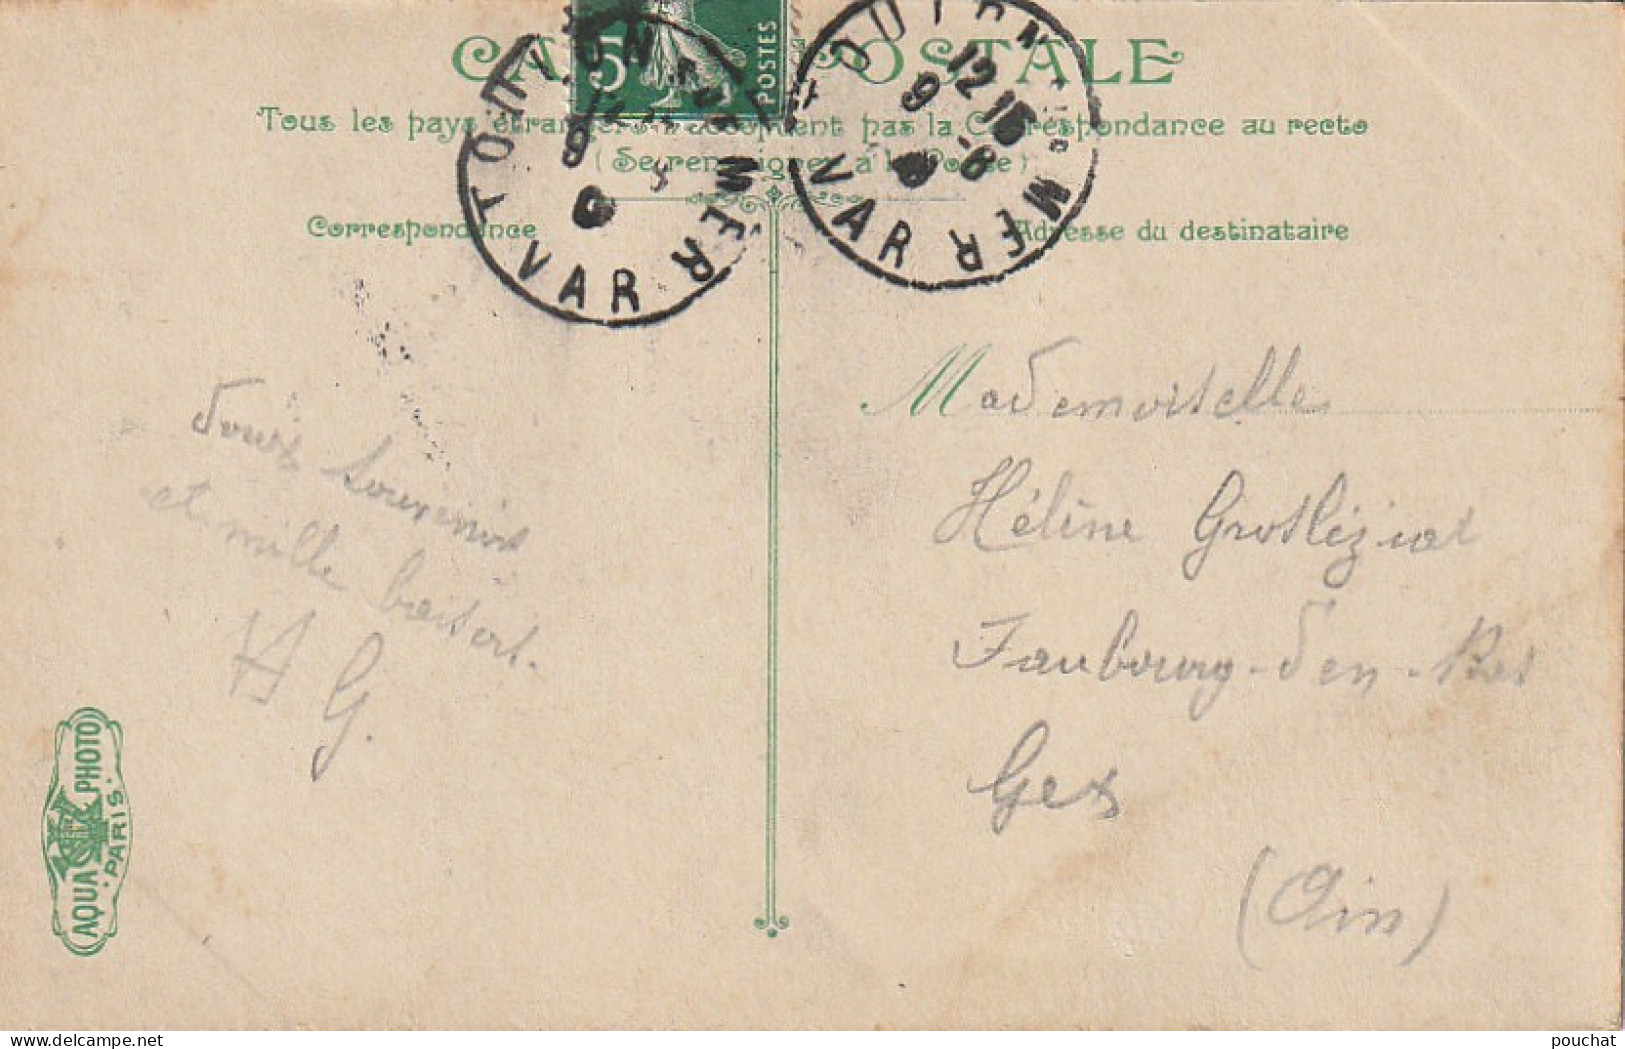 CARTE POSTALE
Tous les pays étrangers n'acceptent pas la Correspondance au recto
(Se renseigner à la Poste)
Correspondance
Adresse du destinataire
5
POSTES
TOULON SUR MER
9
VAR
TOULON SUR MER
12 15
9 - 8
VAR
Doux souvenir
et mille baisers.
A G.
Mademoiselle
Hélène Grosléziat
Faubourg-d'en-Bas
Gex
(Ain)
AQUA PHOTO
PARIS
pouchat